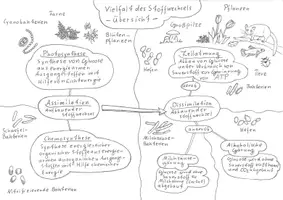 Vielfalt des Stoffwechsels
- Übersicht -
Cyanobakterien
Farne
Blüten-
pflanzen
Großpilze
Pflanzen
Hefen
Tiere
Bakterien
Photosynthese
Synthese von Glucose
aus energiearmen
Ausgangsstoffen mit
Hilfe von Lichtenergie
Zellatmung
Abbau von Glucose
unter Verbrauch von
Sauerstoff
von ATP
aerob
Assimilation
aufbauender
Stoffwechsel
Dissimilation
abbauender
Stoffwechsel
anaerob
Schwefel-
bakterien
Chemosynthese
Synthese energiereicher
organischer Stoffe aus energie-
armen anorganischen Ausgangs-
stoffen mit Hilfe chemischer
Energie
Nitrifizierende Bakterien
Milchsäure-
bakterien
Hefen
Milchsäure-
gärung
Glucose wird ohne
Sauerstoff zu
Milchsäure
abgebaut
Alkoholische
Gärung
Glucose wird ohne
Sauerstoff zu Ethanol
und CO₂ abgebaut